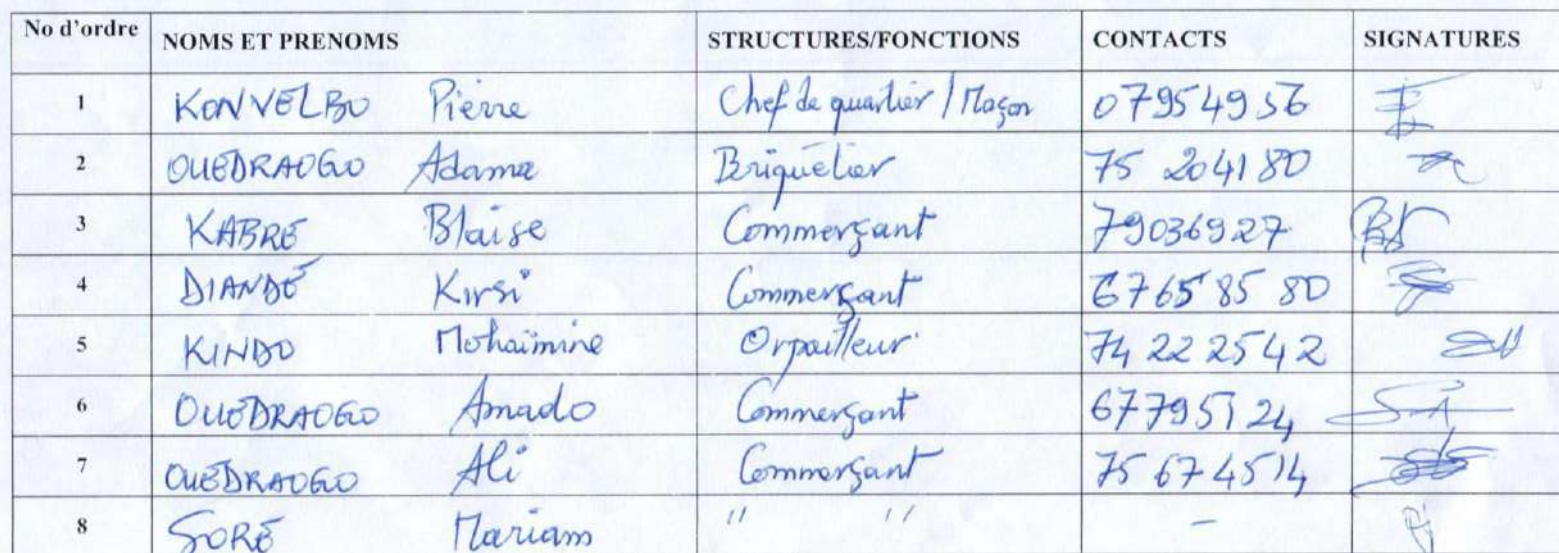 No d'ordre NOMS ET PRENOMS STRUCTURES/FONCTIONS CONTACTS SIGNATURES
1 KONVELBO Pierre Chef de quartier / Maçon 07954956
2 OUEDRAOGO Adama Briquetier 75 204180
3 KABRÉ Blaise Commerçant 79036927
4 DIANDÉ Kirsi Commerçant 67658580
5 KINDO Mohaïmine Orpailleur 74 22 25 42
6 OUEDRAOGO Amado Commerçant 67795124
7 OUEDRAOGO Ali Commerçant 75 67 45 14
8 SORÉ Mariam " " -